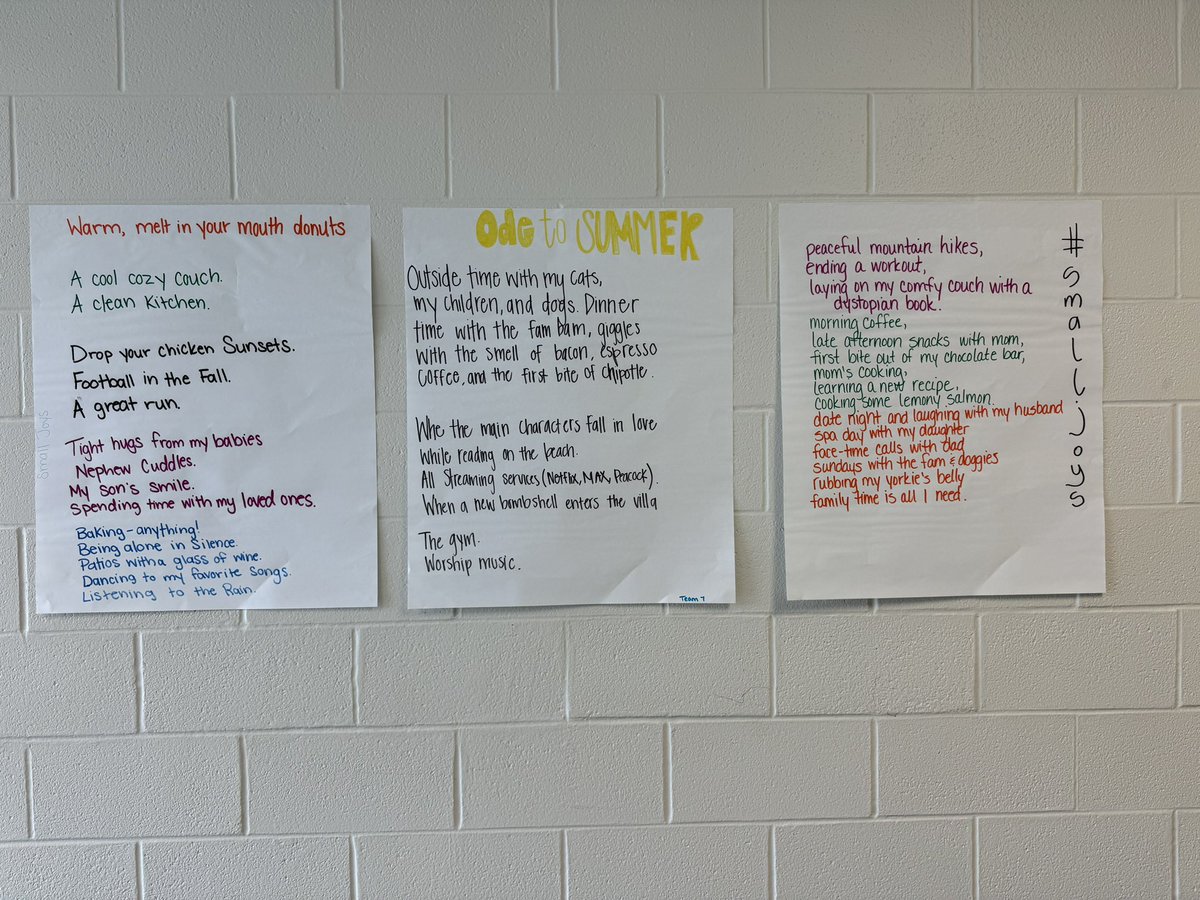 Warm, melt in your mouth donuts
A cool cozy couch.
A clean Kitchen.
Drop your chicken Sunsets.
Football in the Fall.
A great run.
Tight hugs from my babies
Nephew Cuddles.
My son's smile.
Spending time with my loved ones.
Baking-anything!
Being alone in Silence.
Patios with a glass of wine.
Dancing to my favorite songs.
Listening to the Rain.
Small Joys
Ode to SUMMER
Outside time with my cats,
my children, and dogs. Dinner
time with the fam bam, giggles
with the smell of bacon, espresso
coffee, and the first bite of chipotle.
Whe the main characters fall in love
while reading on the beach.
All Streaming services (Netflix, MAX, Peacock).
When a new bombshell enters the villa
The gym.
Worship music.
Team 7
peaceful mountain hikes,
ending a workout,
laying on my comfy couch with a
dystopian book.
morning coffee,
late afternoon snacks with mom,
first bite out of my chocolate bar,
mom's cooking,
learning a new recipe,
cooking some lemony salmon.
date night and laughing with my husband
spa day with my daughter
face-time calls with dad
sundays with the fam & doggies
rubbing my yorkie's belly
family time is all I need.
#smalljoys